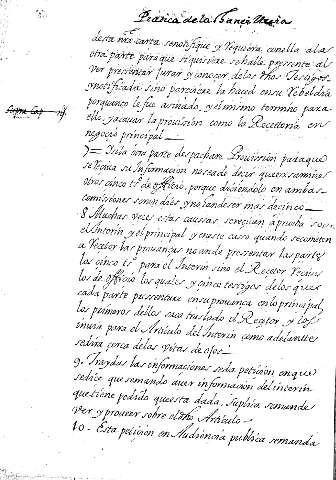 Practica de la
desta nra carta se notifique y requiera, con ella a la
otra parte para que si quisiere se halle presente al
ver presentar jurar y conocer de los dhos Testigos
y notificada sino pareciere la haced en su Rebeldia
porque fue avisado, y el mismo termino para
ello, y sacar la provission como la Receptoria en
negocio principal
7 = Y si la otra parte despachare Provission para que
se reciva su Informacion no se ha de decir que examinen
otros cinco ts de officio, porque diciendolo en ambas
comisiones seran diez, y no han de ser mas de cinco
8 Muchas veces estas causas se reciven á prueba sobre
el Interin, y el principal y en este caso quando se cometen
a Rector las provanzas no an de presentar las partes
los cinco ts para el Interin sino el Rector recive
los de officio los quales, y cinco testigos de los que
cada parte presentare en su provanza en lo principal,
los primeros dellos saca traslado el Rector, y los
invia para el Articulo del Interin como adelante
se dira cerca de las vistas de ojos
9. Traydas las informaciones se da peticion en que
se dice que su mando aver informacion del interin
que tiene pedido, que esta dada, suplica se mande
ver, y proveer sobre el dho Articulo
10 - Esta peticion en Audiencia publica se manda